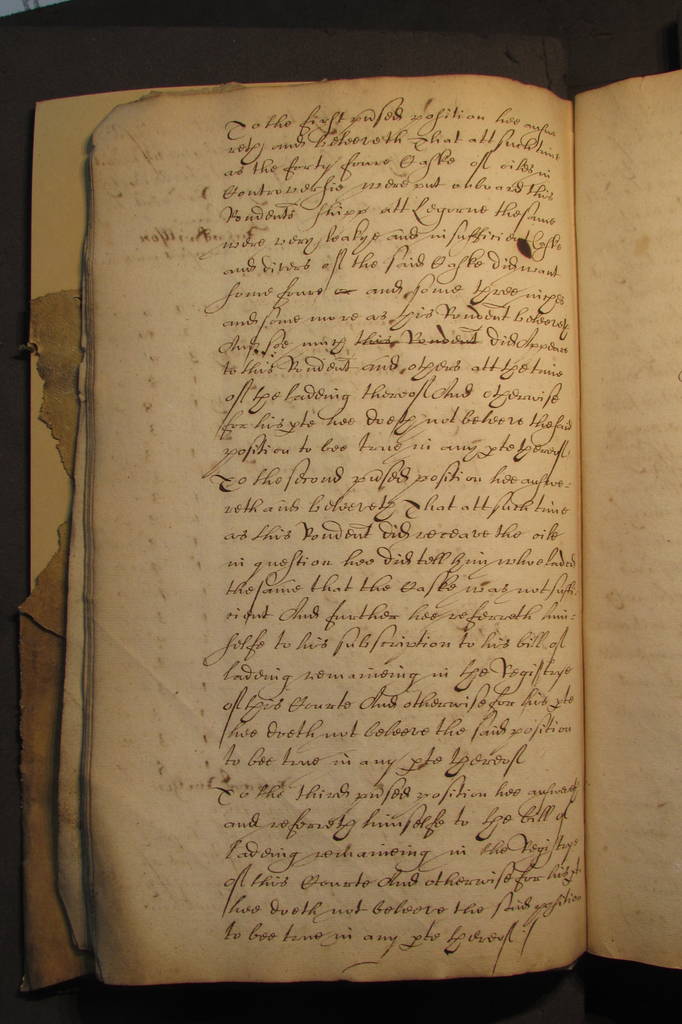 To the first pnsed position hee answe
reth and beleeveth That att such time
as the forty foure Caske of oiles in
Controversie were put onboard this
Rondents shipp att Legorne the same
were very leakye and insufficient Caske
and divers of the said Caske did want
some foure and some three inches
and some more as this Rondent beleeveth
And soe much this Rondent did Appeare
to this Rondent and others att the time
of the ladeing thereof And otherwise
for his pte hee doeth not beleeve the said
position to bee true in any pte thereof
To the second pnsed position hee answe-
reth and beleeveth That att such time
as this Rondent did receave the oile
in question hee did tell him who laded
the same that the Caske was not suffi-
cient And further hee referreth him-
selfe to his subscription to his bill of
ladeing remaineing in the Registrye
of this Courte And otherwise for his pte
hee doeth not beleeve the said position
to bee true in any pte thereof
To the third pnsed position hee answereth
and referreth himselfe to the bill of
ladeing remaineing in the Registrye
of this Courte And otherwise for his pte
hee doeth not beleeve the said position
to bee true in any pte thereof